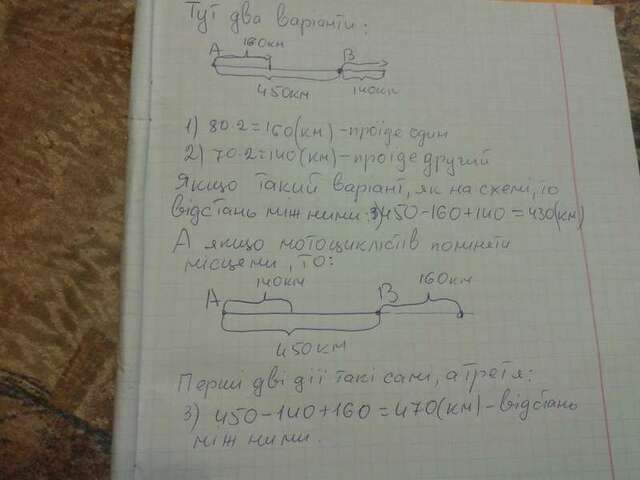 Тут два варіанти:
160км
A B
450км 140км
1) 80·2=160(км) - проїде один
2) 70·2=140(км) - проїде другий
Якщо такий варіант, як на схемі, то
відстань між ними: 3) 450-160+140=430(км)
А якщо мотоциклістів поміняти
місцями, то:
140км 160км
A B
450км
Перші дві дії такі самі, а третя:
3) 450-140+160=470(км) - відстань
між ними.